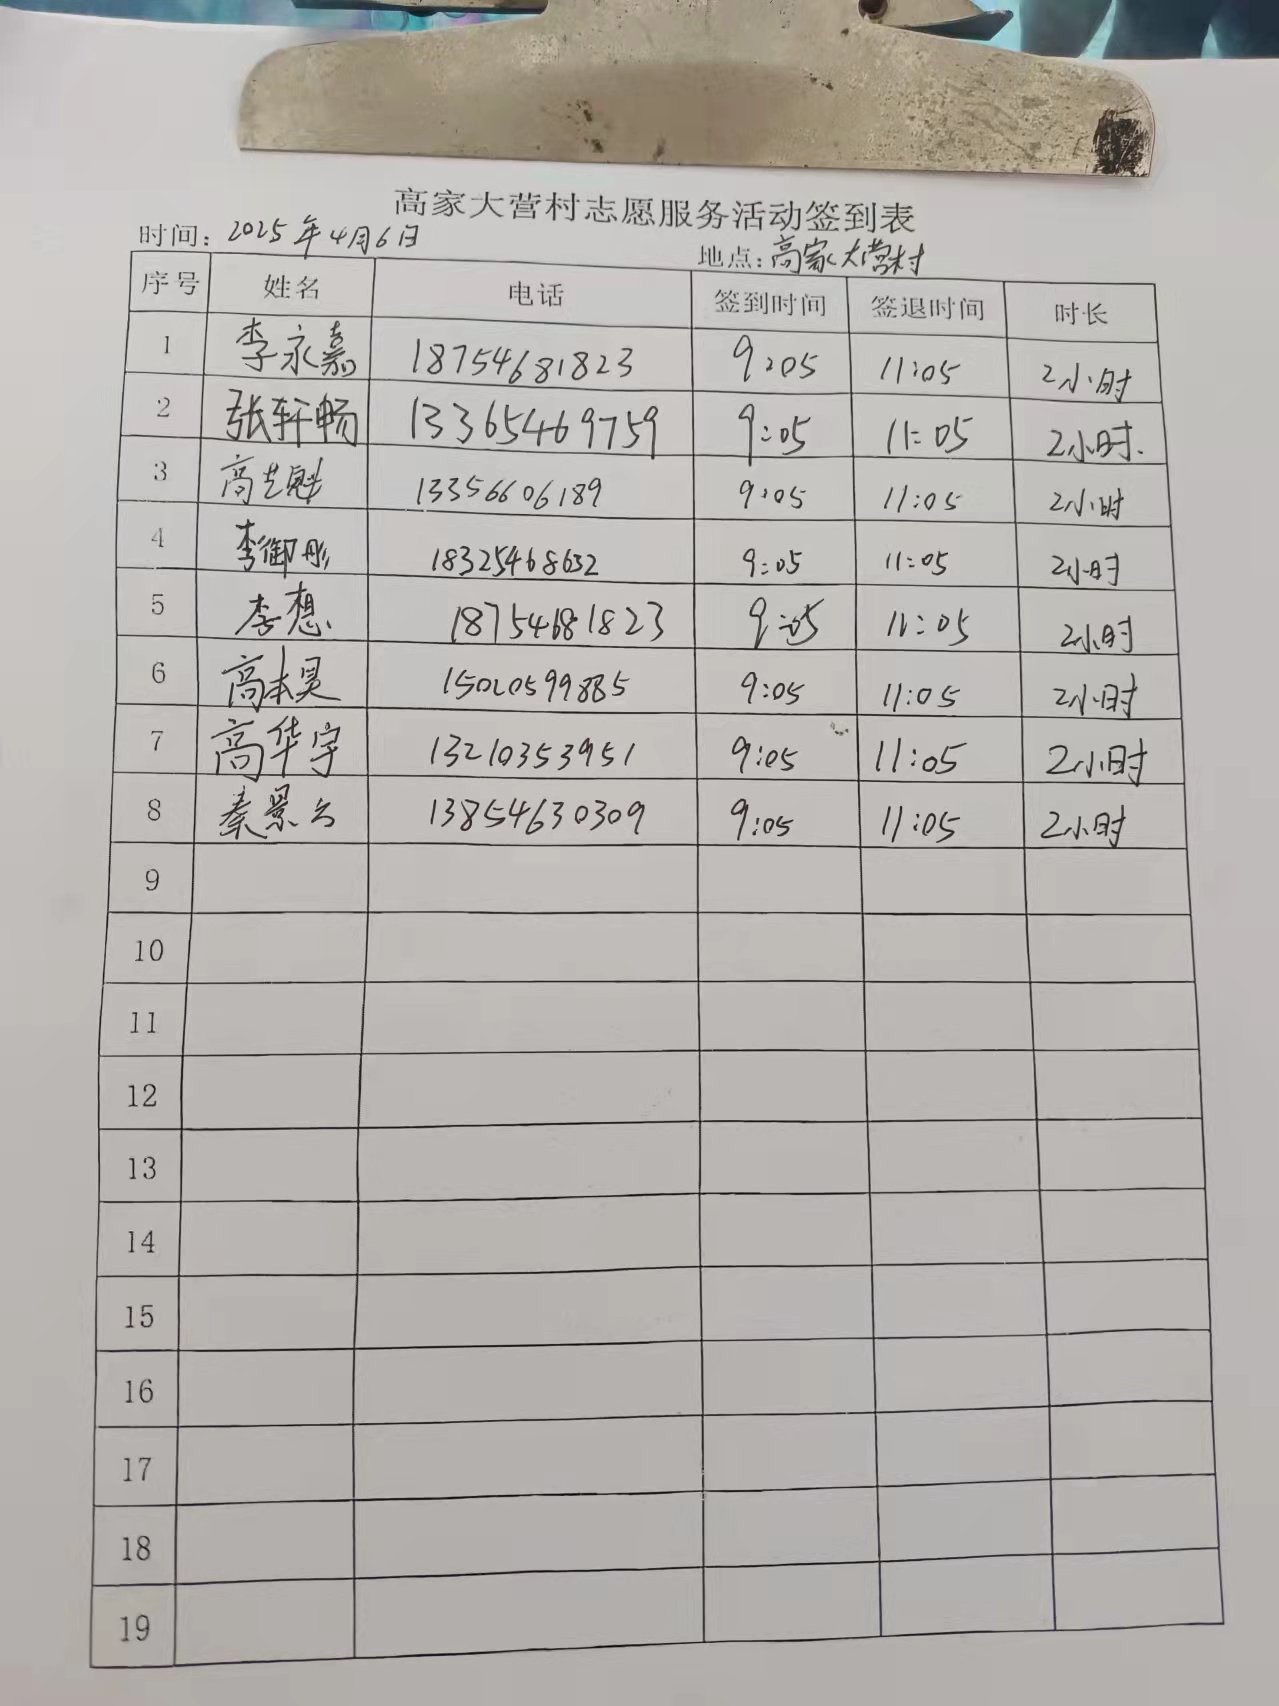 高家大营村志愿服务活动签到表
时间: 2025年4月6日 地点: 高家大营村
序号 姓名 电话 签到时间 签退时间 时长
1 李永嘉 18754681823 9:05 11:05 2小时
2 张轩畅 13365469759 9:05 11:05 2小时.
3 高艺魁 13356606189 9:05 11:05 2小时
4 李御彤 18325468632 9:05 11:05 2小时
5 李想 18754681823 9:05 11:05 2小时
6 高本昊 15020599885 9:05 11:05 2小时
7 高华宇 13210353951 9:05 11:05 2小时
8 秦景云 13854630309 9:05 11:05 2小时
9
10
11
12
13
14
15
16
17
18
19